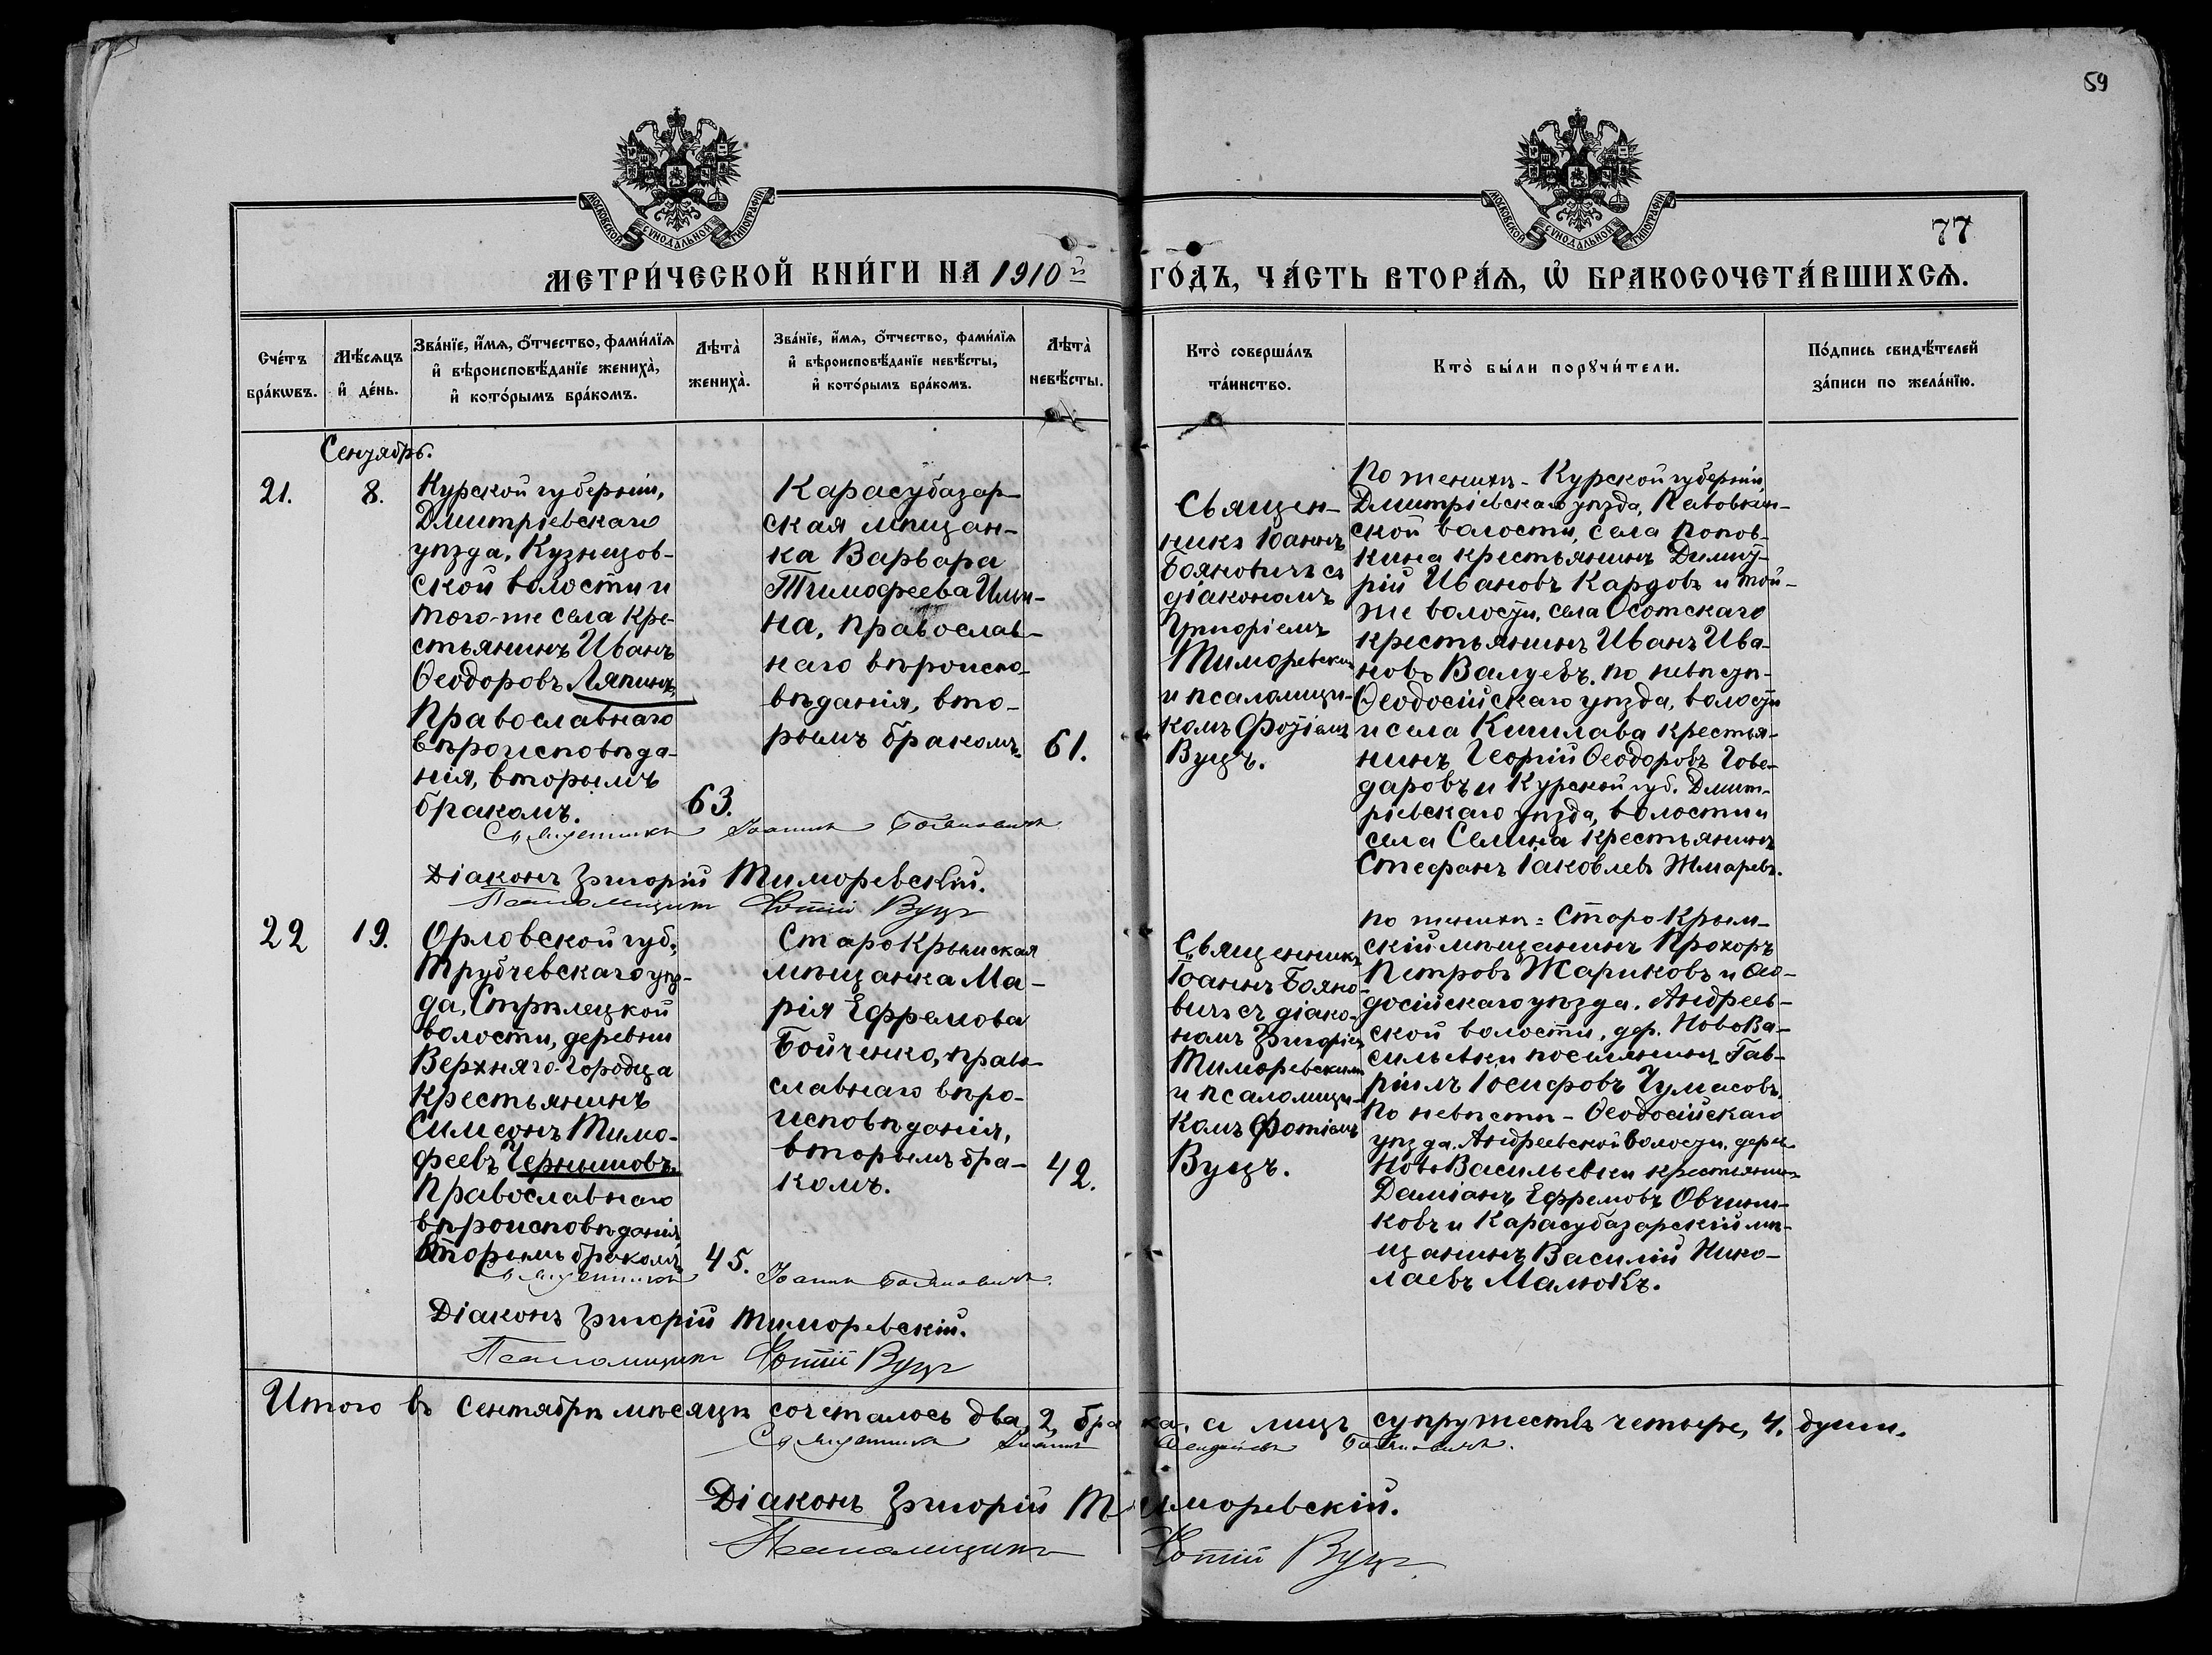 59
МОСКОВСКОЙ СУНОДАЛЬНОЙ ТИПОГРАФІИ
МОСКОВСКОЙ СУНОДАЛЬНОЙ ТИПОГРАФІИ
77
МЕТРИ́ЧЕСКОЙ КНИ́ГИ НА 1910й ГО́ДЪ, ЧА́СТЬ ВТОРА́Ѧ, Ѡ҆ БРАКОСОЧЕТА́ВШИХСѦ.
Сче́тъ
бра́кѡвъ.
Мѣ́сѧцъ
и҆ де́нь.
Зва́нїе, и҆́мѧ, ѻ҆́тчество, фами́лїѧ
и҆ вѣроисповѣ́данїе жениха̀,
и҆ кото́рымъ бра́комъ.
Лѣта̀
жениха̀.
Зва́нїе, и҆́мѧ, ѻ҆́тчество, фами́лїѧ
и҆ вѣроисповѣ́данїе невѣ́сты,
и҆ кото́рымъ бра́комъ.
Лѣта̀
невѣ́сты.
Кто̀ соверша́лъ
та́инство.
Кто̀ бы́ли порꙋчи́тели.
По́дпись свидѣ́телей
за́писи по жела́нїю.
Сентябрь.
21.
8.
Курской губерніи,
Дмитріевскаго
уѣзда, Кузнецов-
ской волости и
того-же села кре-
стьянинъ Иванъ
Ѳеодоровъ Ляпинъ,
Православнаго
вѣроисповѣда-
нія, вторымъ
бракомъ.
63.
Карасубазар-
ская мѣщан-
ка Варвара
Тимофеева Ильи-
на, православ-
наго вѣроиспо-
вѣданія, вто-
рымъ бракомъ.
61.
Священ-
никъ Іоаннъ
Бояновичъ съ
діакономъ
Григоріемъ
Тиморевским
и псаломщи-
комъ Фотіемъ
Вуцъ.
По женихѣ - Курской губерніи
Дмитріевскаго уѣзда,
ской волости, села Попов-
кина крестьянинъ Димит-
рій Ивановъ Кардовъ и той-
же волости, села Осотскаго
крестьянинъ Иванъ Ива-
новъ Валуевъ. по невѣстѣ-
Ѳеодосійскаго уѣзда, волости
и села Кишлава крестья-
нинъ Георгій Ѳеодоровъ Гове-
даровъ и Курской губ. Дмит-
ріевскаго уѣзда, волости и
села Селина крестьянинъ
Стефанъ Іаковлевъ Жмаревъ.
Священникъ Іоаннъ Бояновичъ
Діаконъ Григорій Тиморевскій.
Псаломщикъ Фотій Вуцъ
22
19.
Орловской губ.,
Трубчевскаго уѣз-
да, Стрѣлецкой
волости, деревни
Верхняго-Городца
крестьянинъ
Симеонъ Тимо-
феевъ Чернышовъ,
Православнаго
вѣроисповѣданія,
Вторымъ бракомъ.
45.
СтароКрымская
мѣщанка Ма-
рія Ефремова
Бойченко, право-
славнаго вѣро-
исповѣданія,
вторымъ бра-
комъ.
42.
Священникъ
Іоаннъ Бояно-
вичъ съ діако-
номъ Григоріем
Тиморевскимъ
и псаломщи-
комъ Фотіемъ
Вуцъ.
По женихѣ: СтароКрым-
скій мѣщанинъ Прохоръ
Петровъ Жариковъ и Ѳео-
досійскаго уѣзда, Андреев-
ской волости, дер. НовоВа-
сильевки поселянинъ Гав-
ріилъ Іосифовъ Чумасовъ.
По невѣстѣ - Ѳеодосійскаго
уѣзда, Андреевской волости, дерев.
НовоВасильевки крестьянинъ
Даміанъ Ефремовъ Овчинни-
ковъ и Карасубазарскій мѣ-
щанинъ Василій Нико-
лаевъ Малюкъ.
Священникъ Іоаннъ Бояновичъ.
Діаконъ Григорій Тиморевскій.
Псаломщикъ Фотій Вуцъ
Итого въ сентябрѣ мѣсяцѣ сочеталось два, 2, брака, а лицъ супружествъ четыре, 4. души.
Священникъ Іоаннъ Бояновичъ.
Діаконъ Григорій Тиморевскій.
Псаломщикъ Фотій Вуцъ.